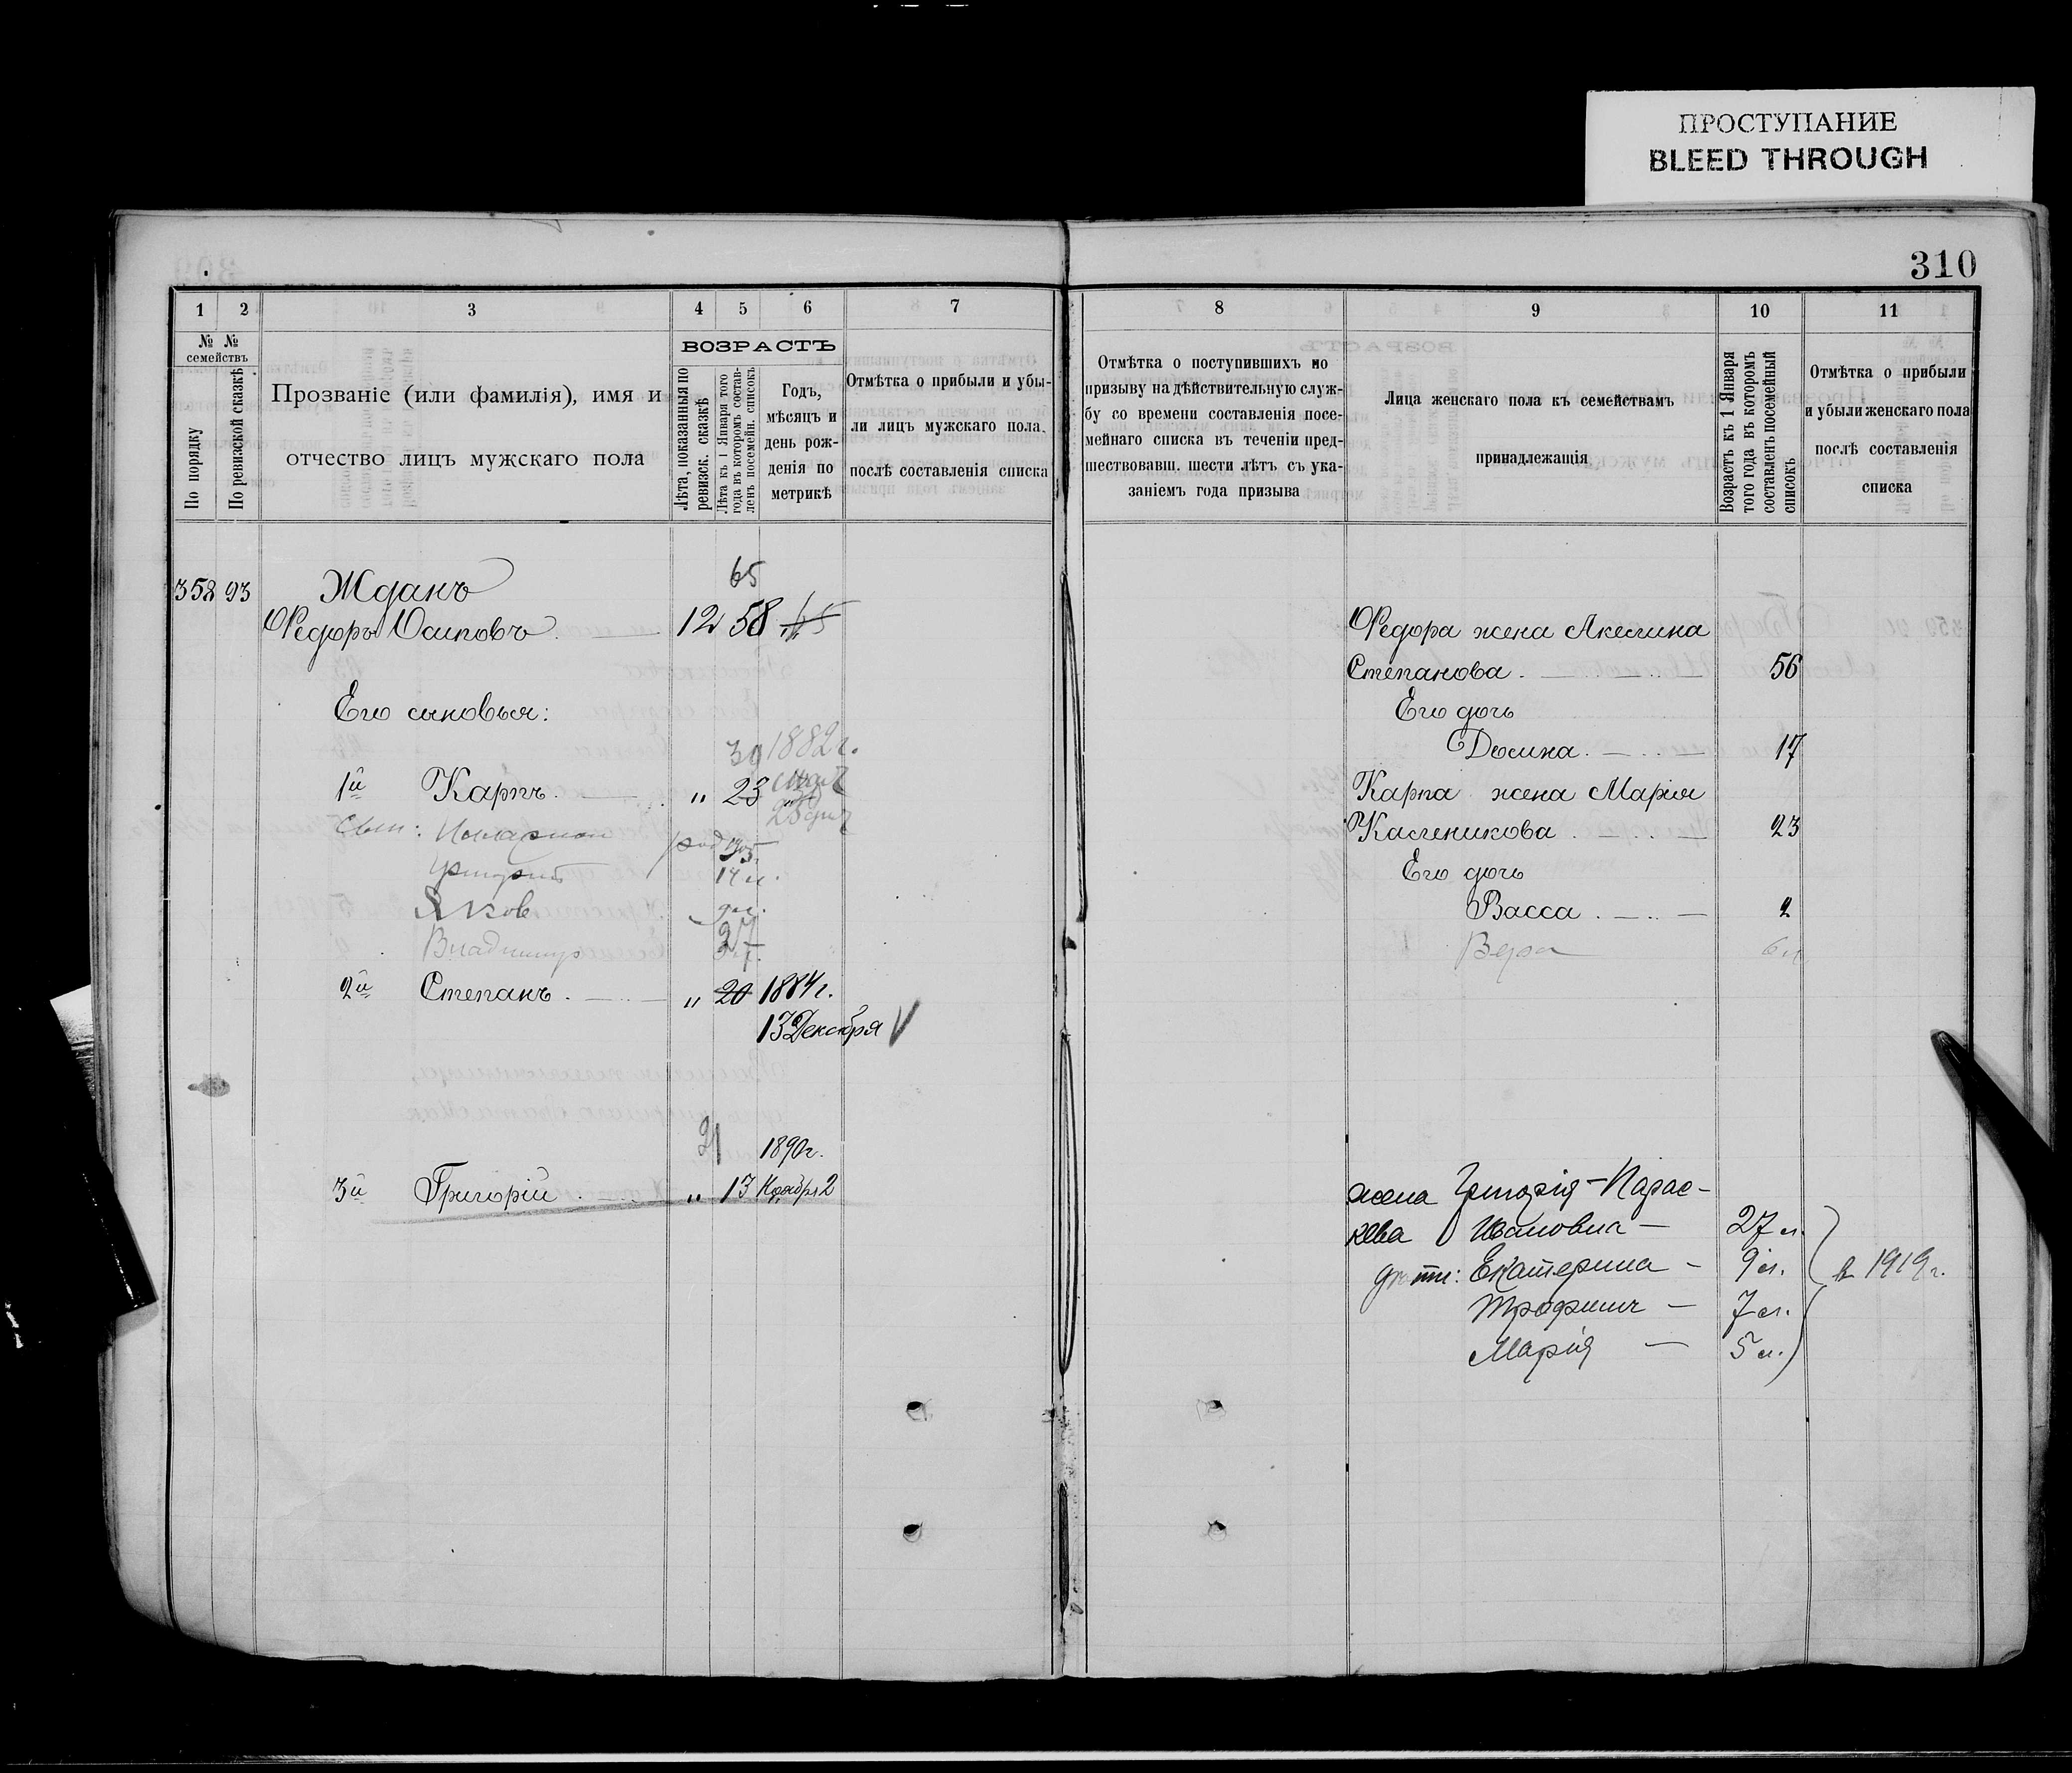 ПРОСТУПАНИЕ
BLEED THROUGH
310
1 2 3 4 5 6 7
№ № семействъ
По порядку
По ревизской сказкѣ
Прозваніе (или фамилія), имя и
отчество лицъ мужскаго пола
ВОЗРАСТЪ
Лѣта, показанныя по
ревизск. сказкѣ
Лѣта къ 1 Января того
года въ которомъ состав-
ленъ посемейн. списокъ
Годъ,
мѣсяцъ и
день рож-
денія по
метрикѣ
Отмѣтка о прибыли и убы-
ли лицъ мужскаго пола,
послѣ составленія списка
358 93 Жданъ 65
Федоръ Осиповъ 12 58
Его сыновья:
30 1882 г.
1й Карпъ " 23
род
14 л.
Яков
Владимир
2й Степанъ " 20 1884 г.
13 Декабря V
21 1890 г.
3й Григорій " 13 Ноября 2
8 9 10 11
Отмѣтка о поступившихъ по
призыву на дѣйствительную служ-
бу со времени составленія посе-
мейнаго списка въ теченіи пред-
шествовавш. шести лѣтъ съ ука-
заніемъ года призыва
Лица женскаго пола къ семействамъ
принадлежащія
Возрастъ къ 1 Января
того года въ которомъ
составленъ посемейный
списокъ
Отмѣтка о прибыли
и убыли женскаго пола
послѣ составленія
списка
Федора жена Акелина
Степанова 56
Его дочь
17
Карпа жена Марія
23
Его дочь
Васса 2
Вера 6 л
жена Григорія - Парас-
кева Ивановна - 27 л.
дѣти: Екатерина - 9 л. в 1919 г.
Трофим - 7 л.
Марія - 5 л.